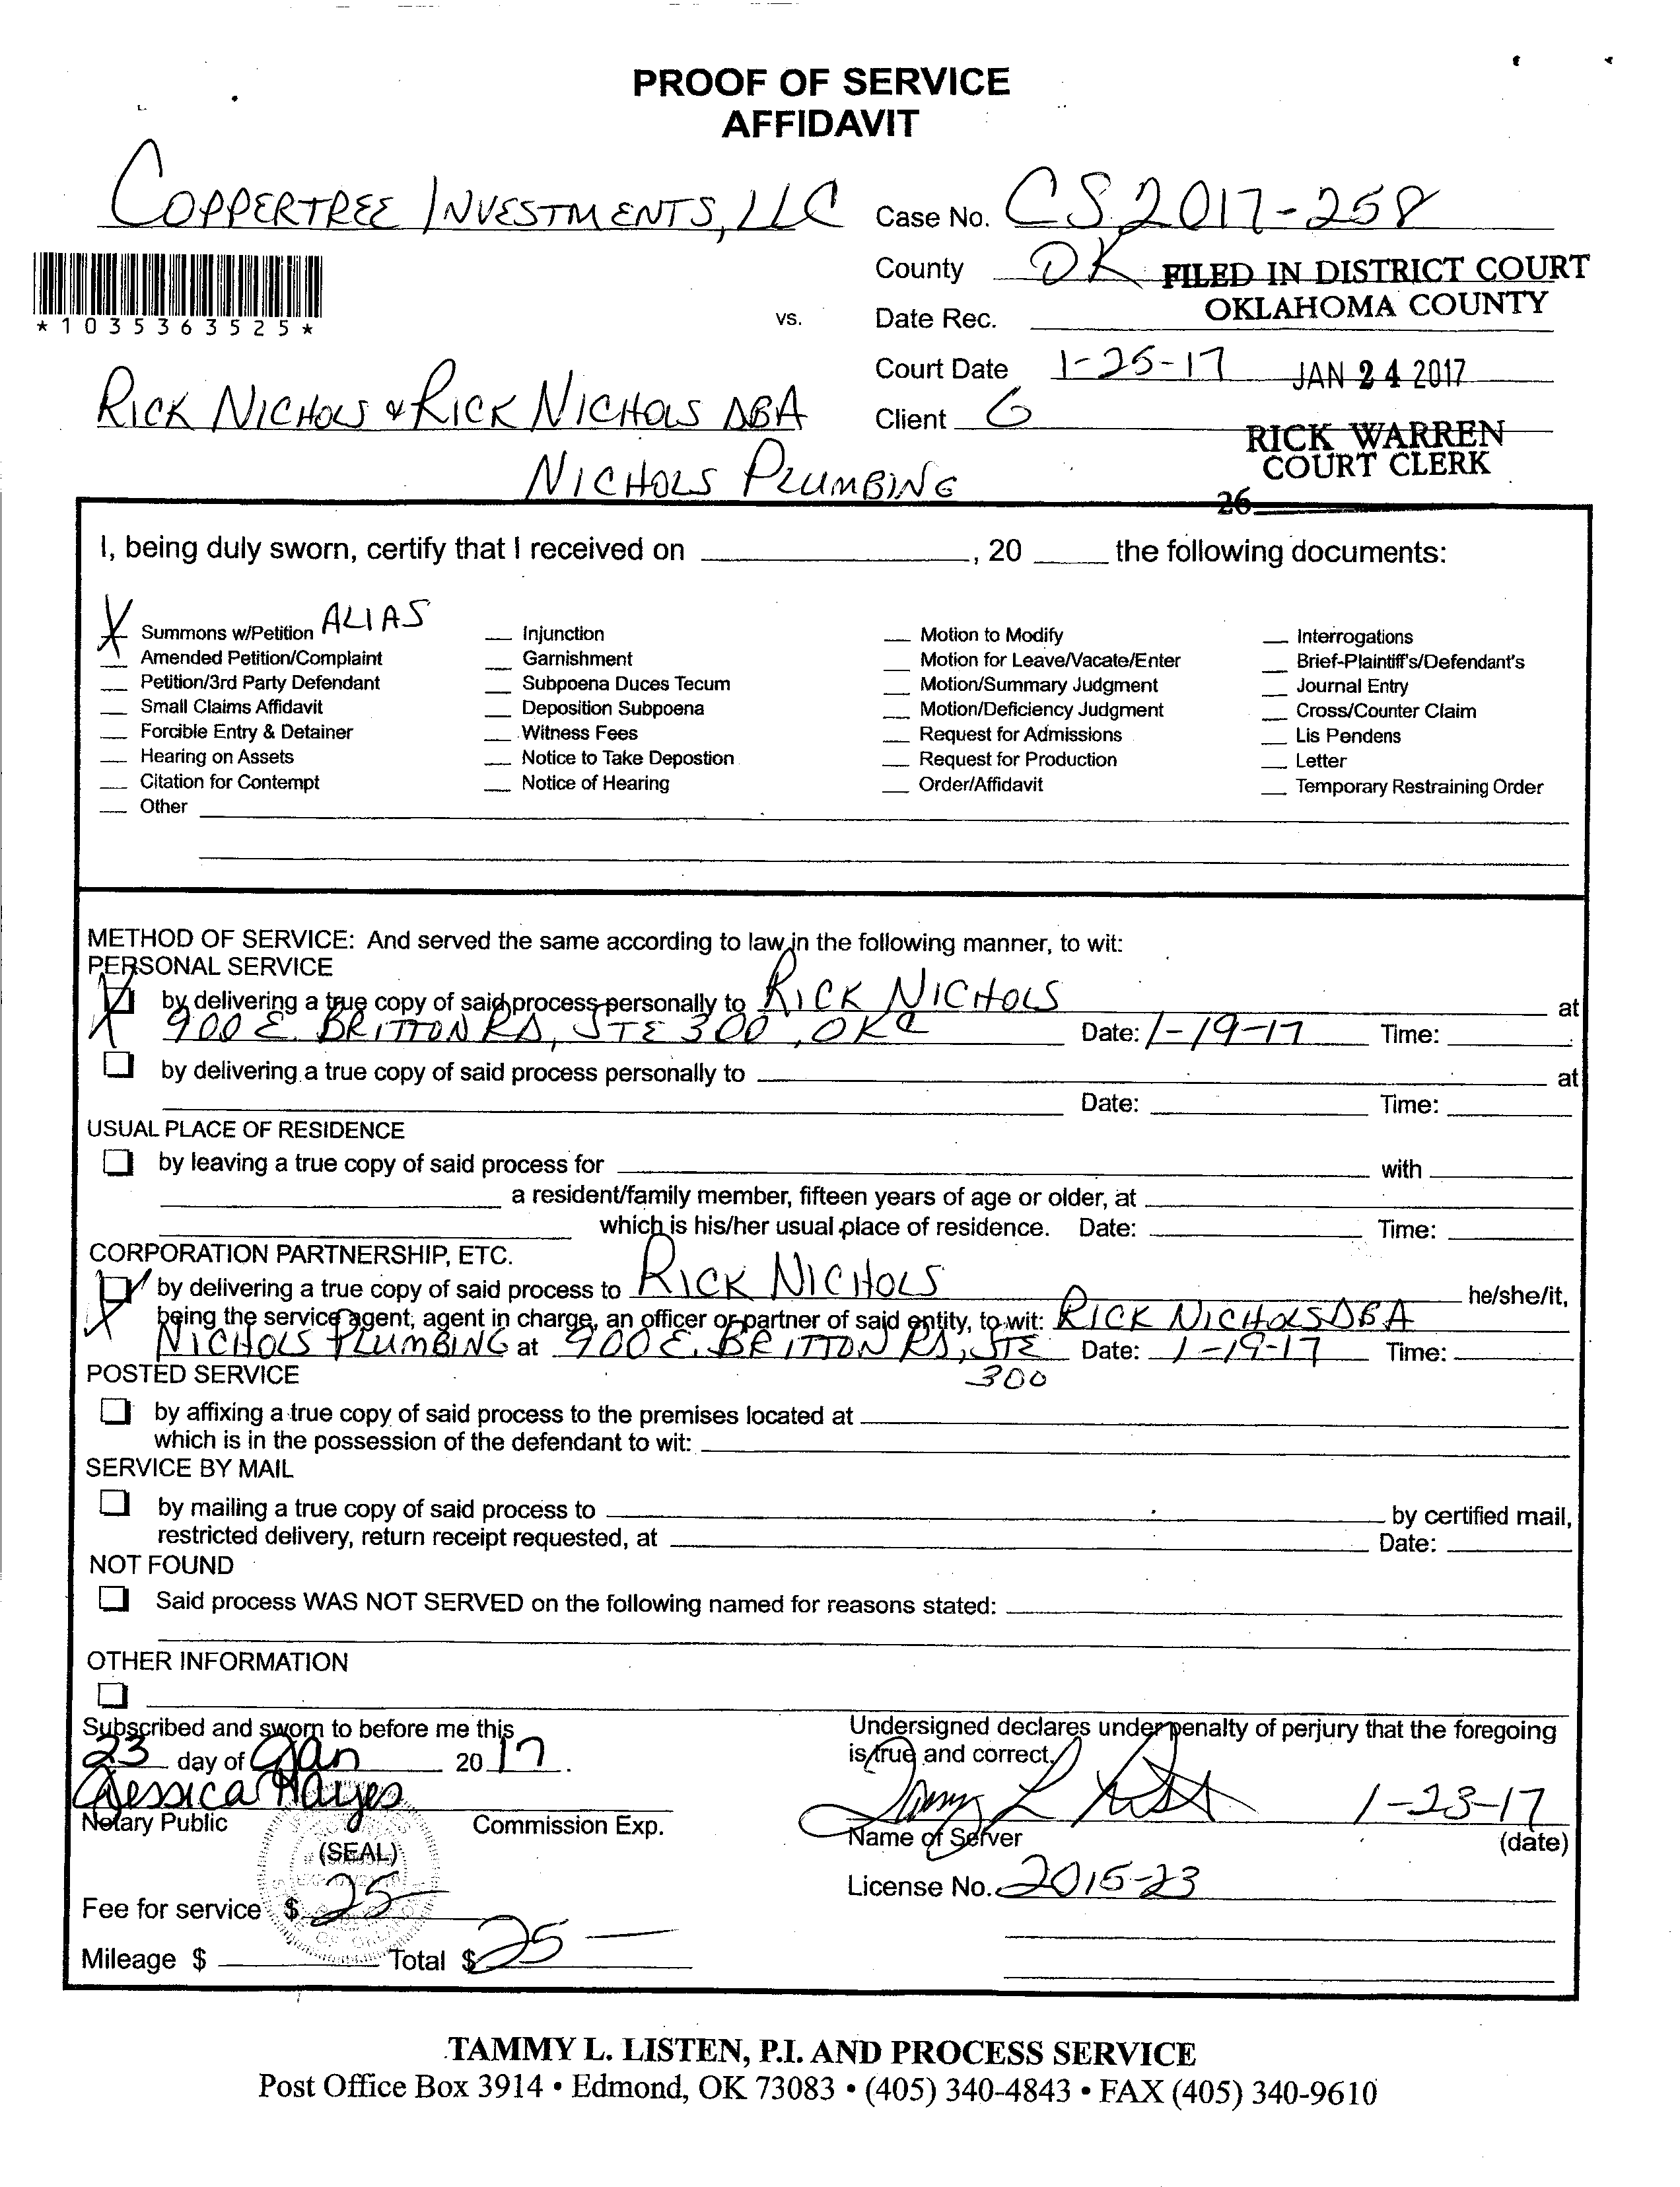 PROOF OF SERVICE
AFFIDAVIT
COPPERTREE INVESTMENTS, LLC
Case No. CS 2017-258
County OK
FILED IN DISTRICT COURT
OKLAHOMA COUNTY
*1035363525*
vs.
Date Rec.
Court Date 1-25-17
JAN 24 2017
RICK NICHOLS & RICK NICHOLS DBA
NICHOLS PLUMBING
Client G
RICK WARREN
COURT CLERK
26
I, being duly sworn, certify that I received on ____, 20 ____ the following documents:
X Summons w/Petition ALIAS
Amended Petition/Complaint
Petition/3rd Party Defendant
Small Claims Affidavit
Forcible Entry & Detainer
Hearing on Assets
Citation for Contempt
Other
Injunction
Garnishment
Subpoena Duces Tecum
Deposition Subpoena
Witness Fees
Notice to Take Depostion
Notice of Hearing
Motion to Modify
Motion for Leave/Vacate/Enter
Motion/Summary Judgment
Motion/Deficiency Judgment
Request for Admissions
Request for Production
Order/Affidavit
Interrogations
Brief-Plaintiff's/Defendant's
Journal Entry
Cross/Counter Claim
Lis Pendens
Letter
Temporary Restraining Order
METHOD OF SERVICE: And served the same according to law in the following manner, to wit:
PERSONAL SERVICE
X by delivering a true copy of said process personally to RICK NICHOLS at
900 E. BRITTON RD, STE 300, OKC Date: 1-19-17 Time:
by delivering a true copy of said process personally to ____ at
Date: ____ Time:
USUAL PLACE OF RESIDENCE
by leaving a true copy of said process for ____ with
a resident/family member, fifteen years of age or older, at
which is his/her usual place of residence. Date: ____ Time:
CORPORATION PARTNERSHIP, ETC.
X by delivering a true copy of said process to RICK NICHOLS he/she/it,
being the service agent, agent in charge, an officer or partner of said entity, to wit: RICK NICHOLS DBA
NICHOLS PLUMBING at 900 E. BRITTON RD, STE 300 Date: 1-19-17 Time:
POSTED SERVICE
by affixing a true copy of said process to the premises located at
which is in the possession of the defendant to wit:
SERVICE BY MAIL
by mailing a true copy of said process to ____ by certified mail,
restricted delivery, return receipt requested, at ____ Date:
NOT FOUND
Said process WAS NOT SERVED on the following named for reasons stated:
OTHER INFORMATION
Subscribed and sworn to before me this
23 day of Jan 2017.
Jessica Hayes
Notary Public Commission Exp.
(SEAL)
Fee for service $ 25—
Mileage $ ____ Total $ 25—
Undersigned declares under penalty of perjury that the foregoing
is true and correct.
Tammy L 1-23-17
Name of Server (date)
License No. 2015-23
TAMMY L. LISTEN, P.I. AND PROCESS SERVICE
Post Office Box 3914 • Edmond, OK 73083 • (405) 340-4843 • FAX (405) 340-9610